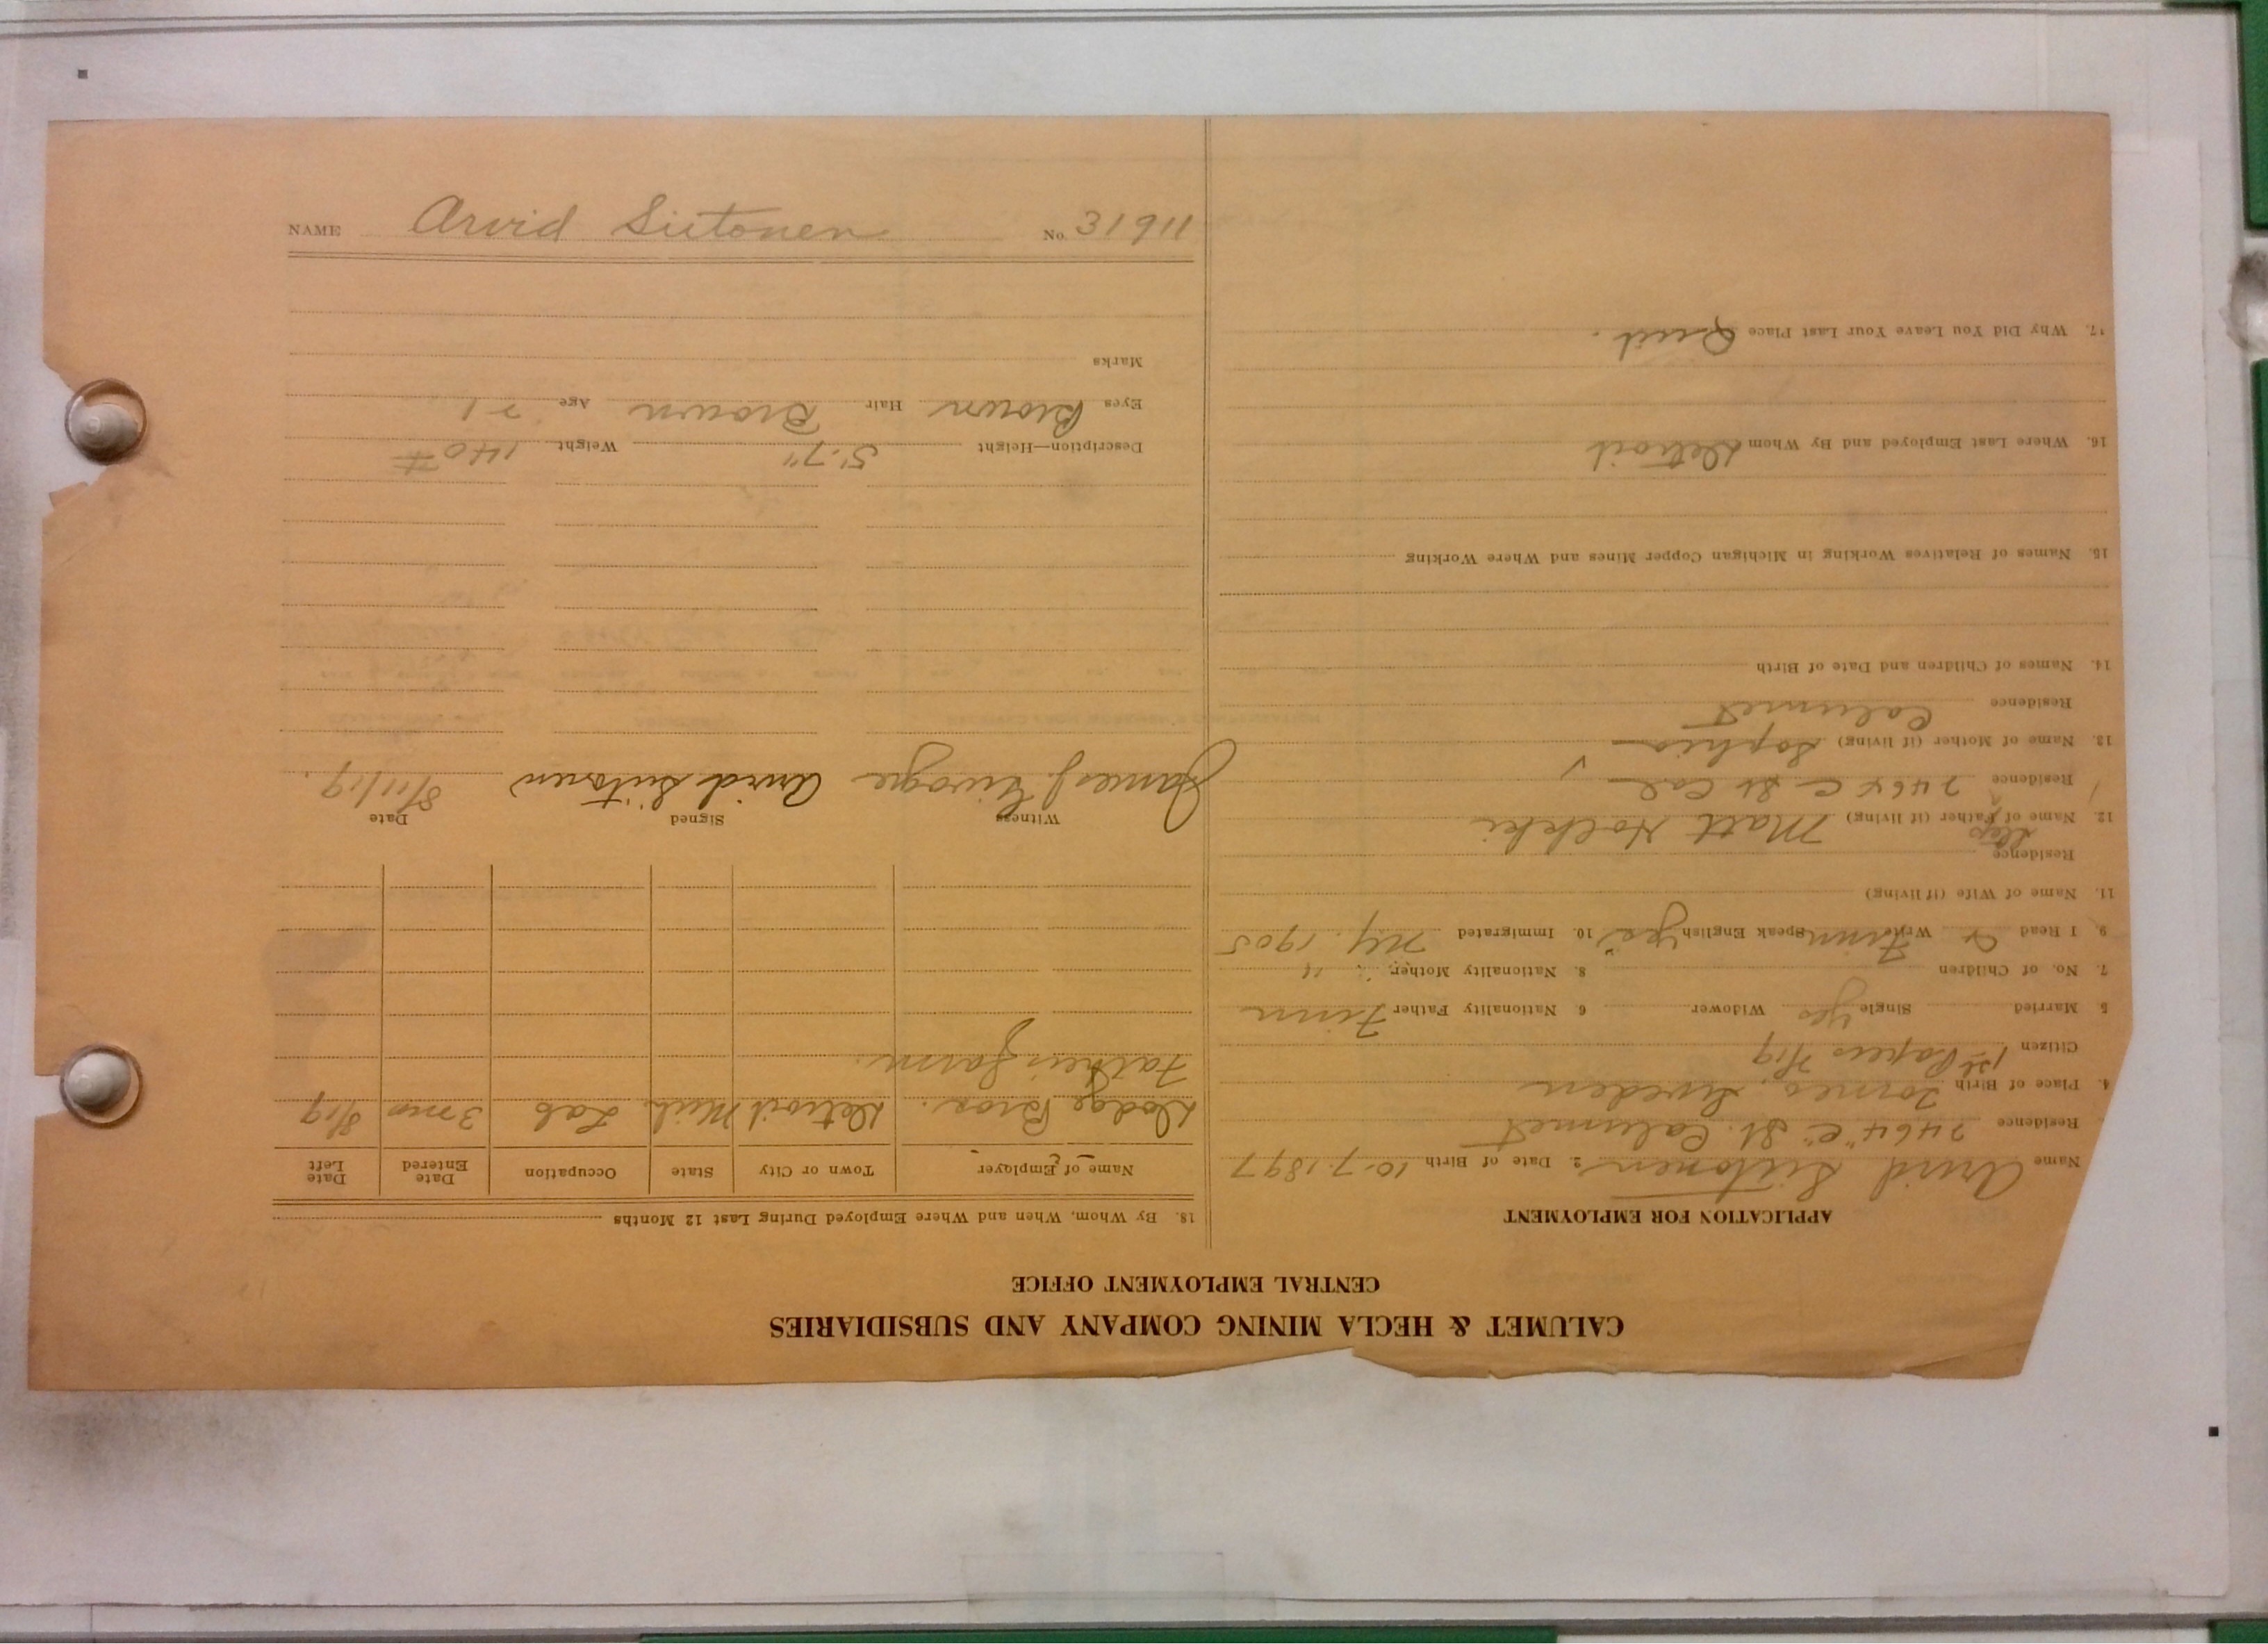 CALUMET & HECLA MINING COMPANY AND SUBSIDIARIES
CENTRAL EMPLOYMENT OFFICE
APPLICATION FOR EMPLOYMENT
Name Arvid Siitonen 2. Date of Birth 10-7-1897
Residence 2464 "C" St. Calumet
4. Place of Birth Torneo, Sweden
Citizen 1st Papers 7/19
5. Married Single Yes Widower 6. Nationality Father Finn
7. No. of Children 8. Nationality Mother "
9. I Read & Write Finn Speak English Yes 10. Immigrated NY. 1905
11. Name of Wife (if living)
Residence
12. Name of Step Father (if living) Matt Holkki
Residence 2464 C St Cal
13. Name of Mother (if living) Sophia
Residence Calumet
14. Names of Children and Date of Birth
15. Names of Relatives Working in Michigan Copper Mines and Where Working
16. Where Last Employed and By Whom Detroit
17. Why Did You Leave Your Last Place Quit.
18. By Whom, When and Where Employed During Last 12 Months
Name of Employer Town or City State Occupation Date Entered Date Left
Dodge Bros. Detroit Mich Lab 3 mo 8/19
Father's farm.
Witness Signed Date
James J. Arvid Siitonen 8/11/19.
Description—Height 5'-7" Weight 140#
Eyes Brown Hair Brown Age 21
Marks
NAME Arvid Siitonen No. 31911